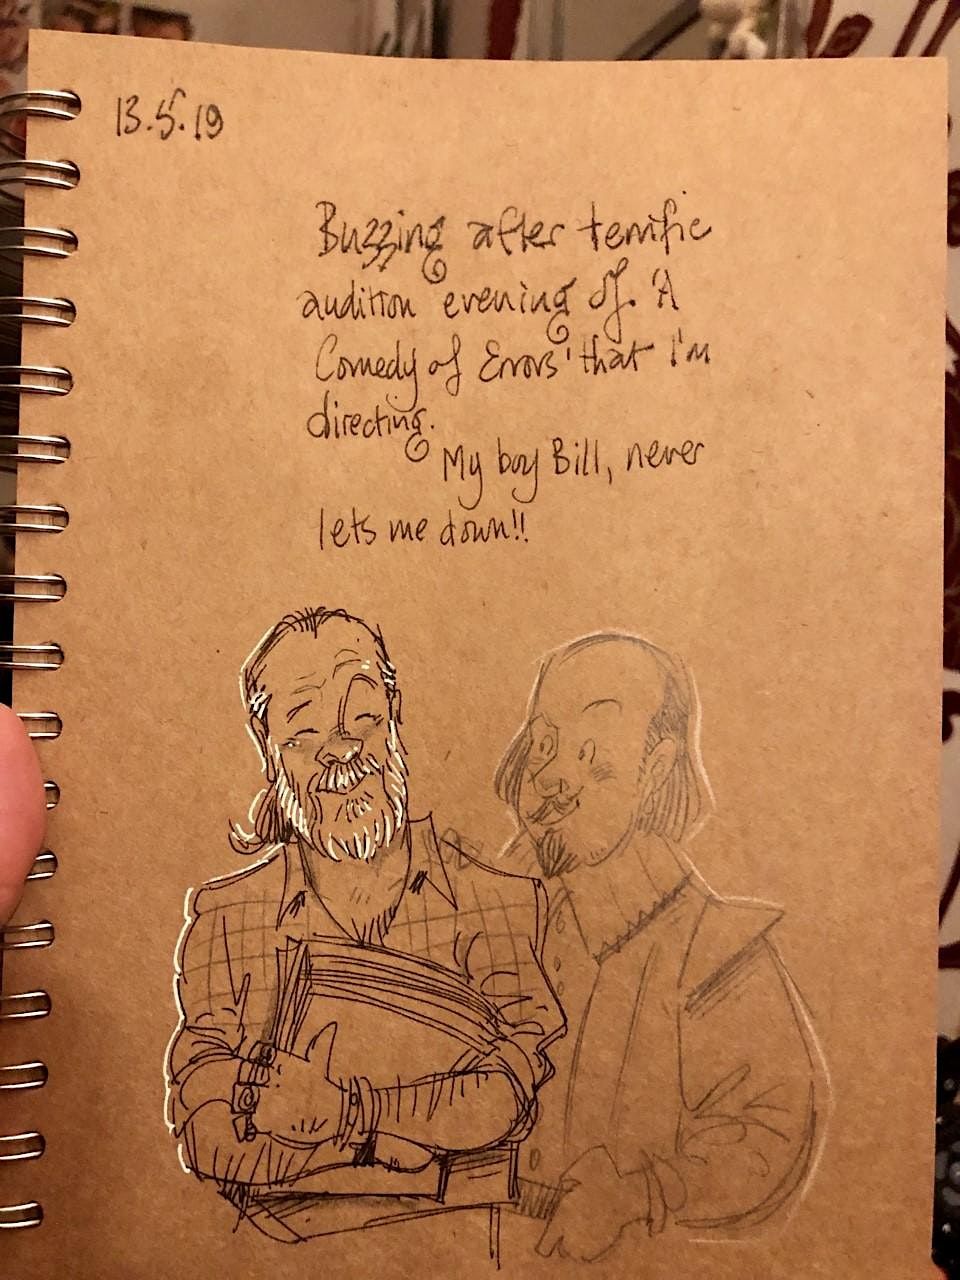 13.5.19
Buzzing after terrific
audition evening of 'A
Comedy of Errors' that I'm
directing.
My boy Bill, never
lets me down!!